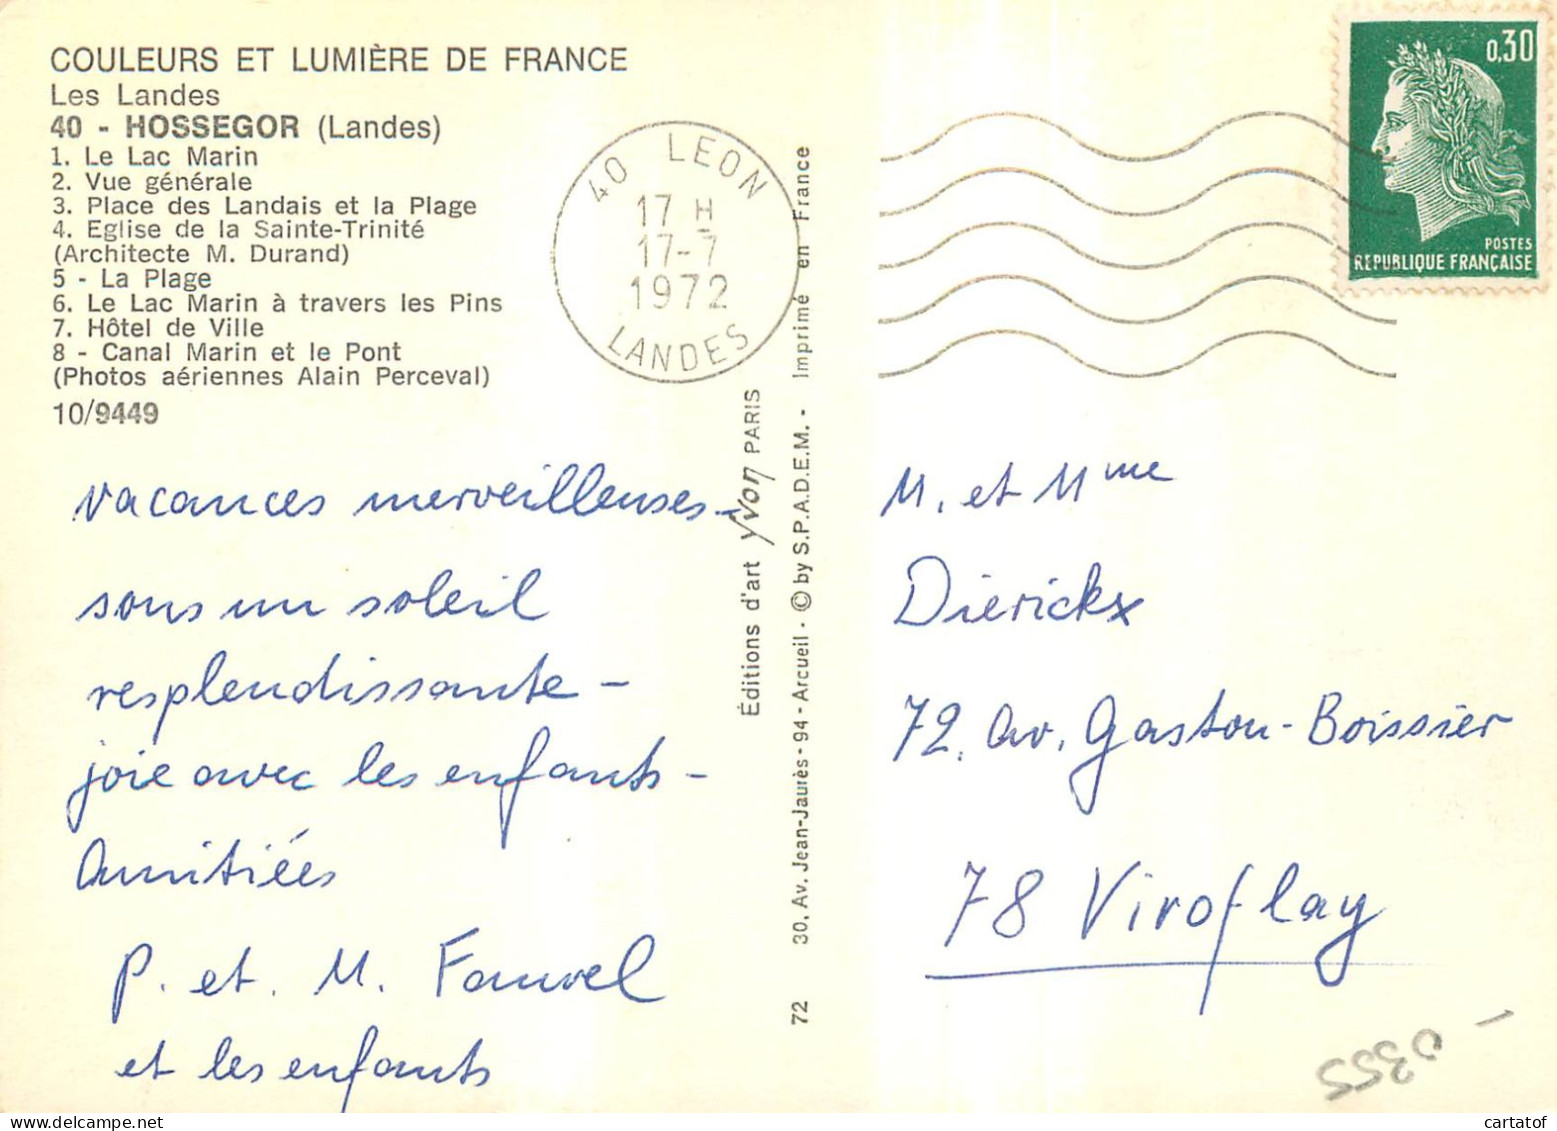 COULEURS ET LUMIÈRE DE FRANCE
Les Landes
40 - HOSSEGOR (Landes)
1. Le Lac Marin
2. Vue générale
3. Place des Landais et la Plage
4. Eglise de la Sainte-Trinité
(Architecte M. Durand)
5 - La Plage
6. Le Lac Marin à travers les Pins
7. Hôtel de Ville
8 - Canal Marin et le Pont
(Photos aériennes Alain Perceval)
10/9449
40 LEON
17 H
17-7
1972
LANDES
0,30
POSTES
REPUBLIQUE FRANÇAISE
vacances merveilleuses -
sous un soleil
resplendissante -
joie avec les enfants -
Amitiées
P. et. M. Fauvel
et les enfants
Éditions d'art Yvon PARIS
72 30, Av. Jean-Jaurès - 94 - Arcueil - © by S.P.A.D.E.M. - Imprimé en France
M. et Mme
Dierickx
72. av. Gaston-Boissier
78 Viroflay
0355 -
delcampe.net
The collector's marketplace
cartatof